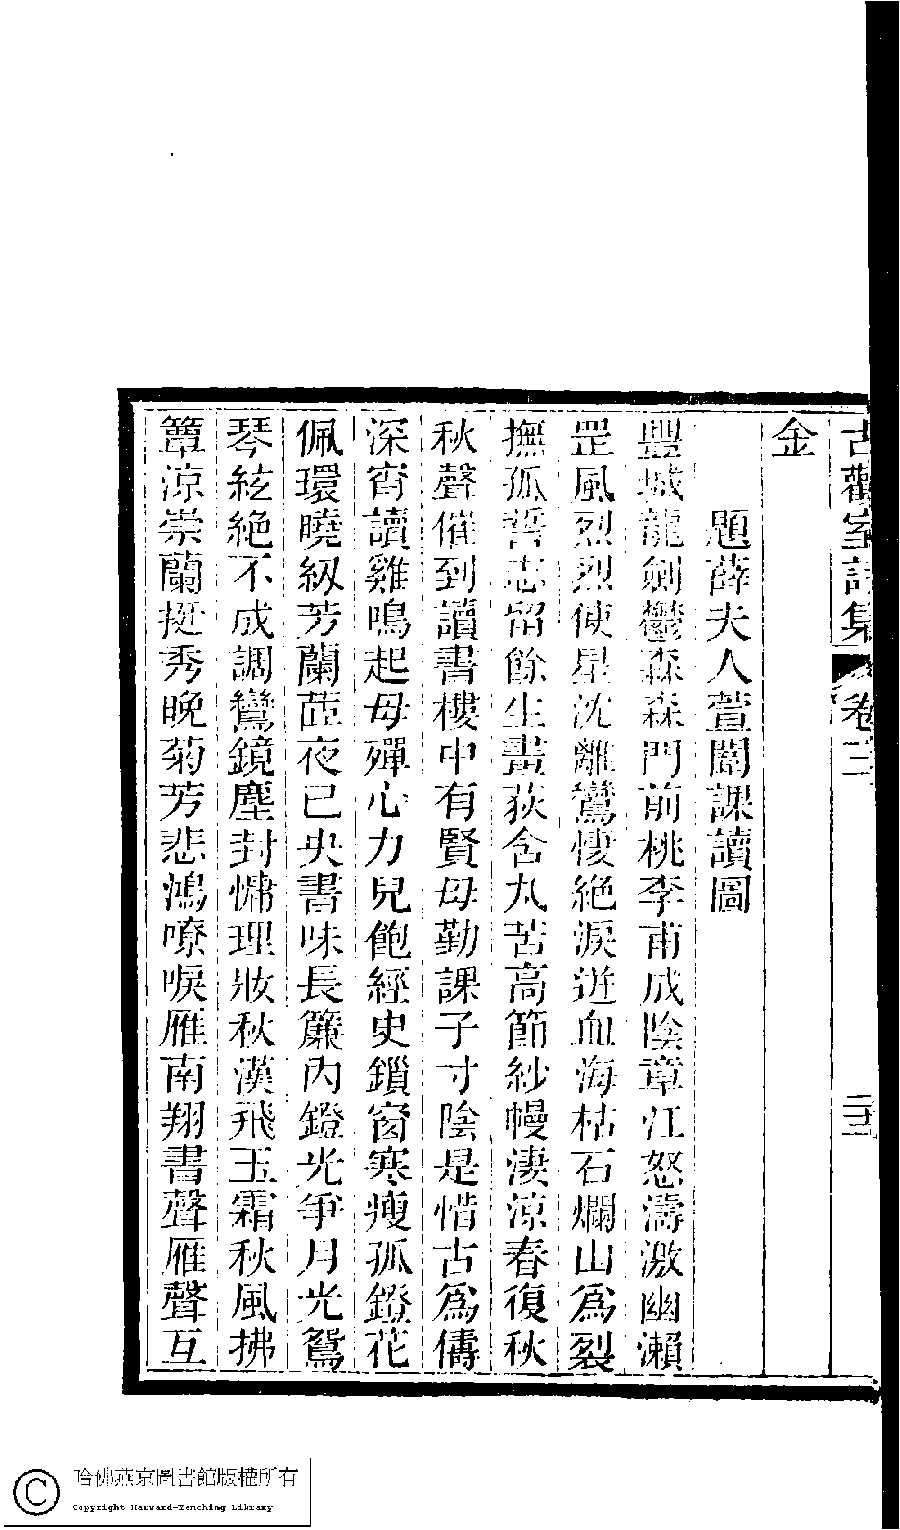 古歡室詩集 卷三 二十三
金
題薛夫人萱闈課讀圖
豐城龍劍鬱森森門前桃李甫成陰章江怒濤激幽瀨
罡風烈烈使星沈離鸞悽絶淚迸血海枯石爛山為裂
撫孤誓志留餘生畫荻含丸苦高節紗幔淒涼春復秋
秋聲催到讀書樓中有賢母勤課子寸陰是惜古為儔
深宵讀雞鳴起母殫心力兒飽經史鎖窗寒瘦孤鐙花
佩環曉紉芳蘭茝夜已央書味長簾內鐙光爭月光鴛
琴絃絶不成調鸞鏡塵封慵理妝秋漢飛玉霜秋風拂
簟涼崇蘭挺秀晚菊芳悲鴻嘹唳雁南翔書聲雁聲互
哈佛燕京圖書館版權所有
Copyright Harvard-Yenching Library